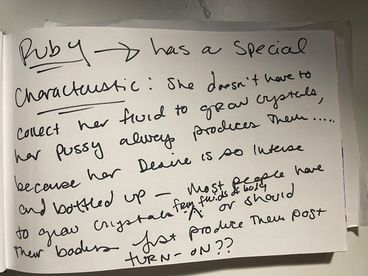 Ruby → has a special
Characteristic: She doesn't have to
collect her fluid to grow crystals,
her pussy always produces them.....
because her Desire is so intense
and bottled up – most people have
to grow crystals ^ from fluids of body or should
their bodies just produce them post
TURN-ON??